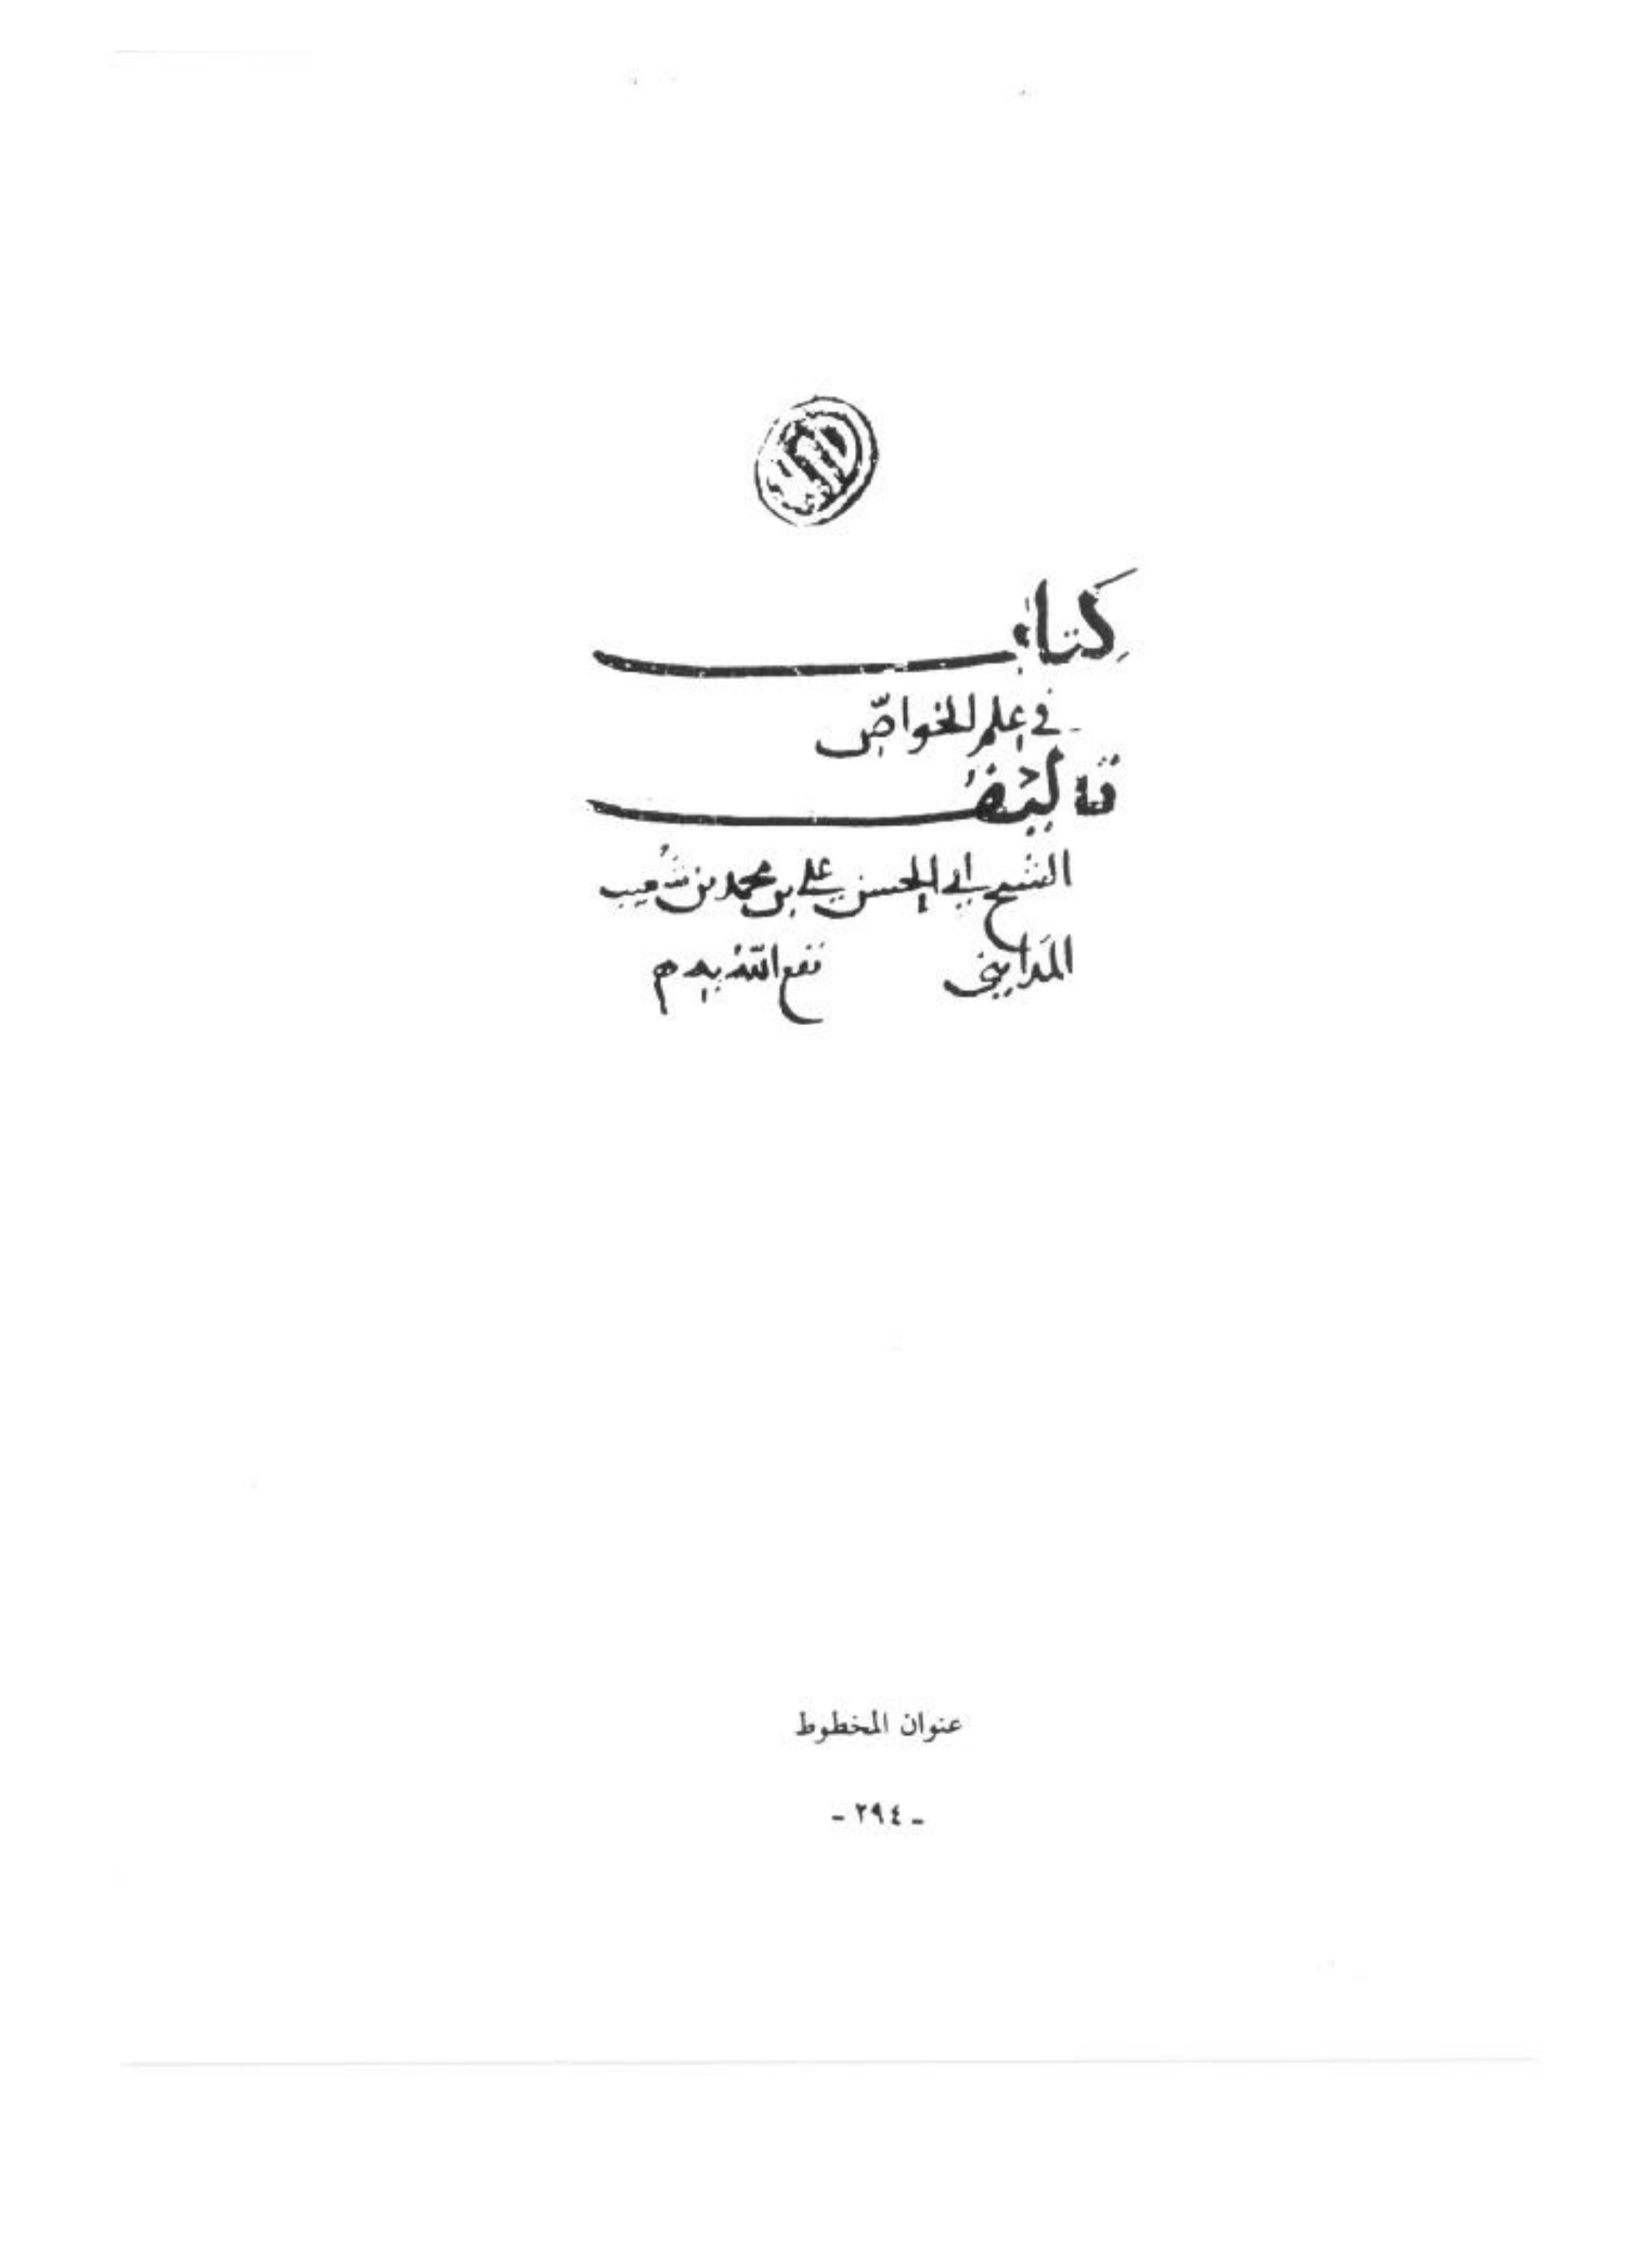 كتاب
في علم الخواصّ
تأليف
الشيخ ابي الحسن علي بن محمد بن شعيب
المدايني نفع الله به م
عنوان المخطوط
- ٢٩٤ -